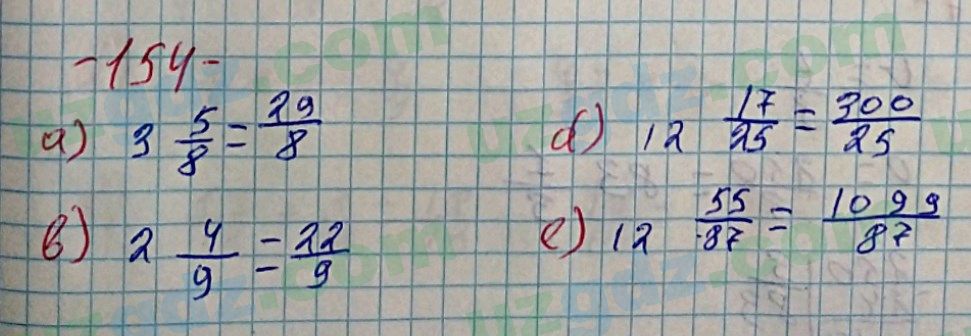 -154-
а) 3 5/8 = 29/8
б) 12 17/25 = 300/25
в) 2 4/9 = 22/9
е) 12 55/87 = 1099/87
uzgdz.com